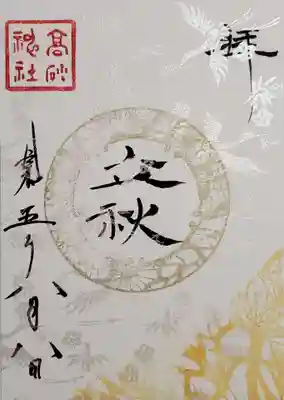 拝
高砂
神社
立秋
令和五年八月八日